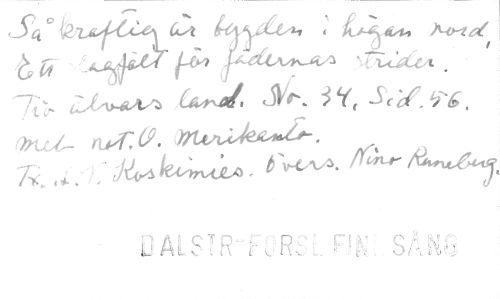 Så kraftig är bygden i högan nord,
Ett slagfält för fädernas strider.
Tio älvars land. No. 34, Sid. 56.
med not. O. Merikanto.
Tx. A.V. Koskimies. Övers. Nino Runeberg.
DALSTR-FORSL FINL SÅNG